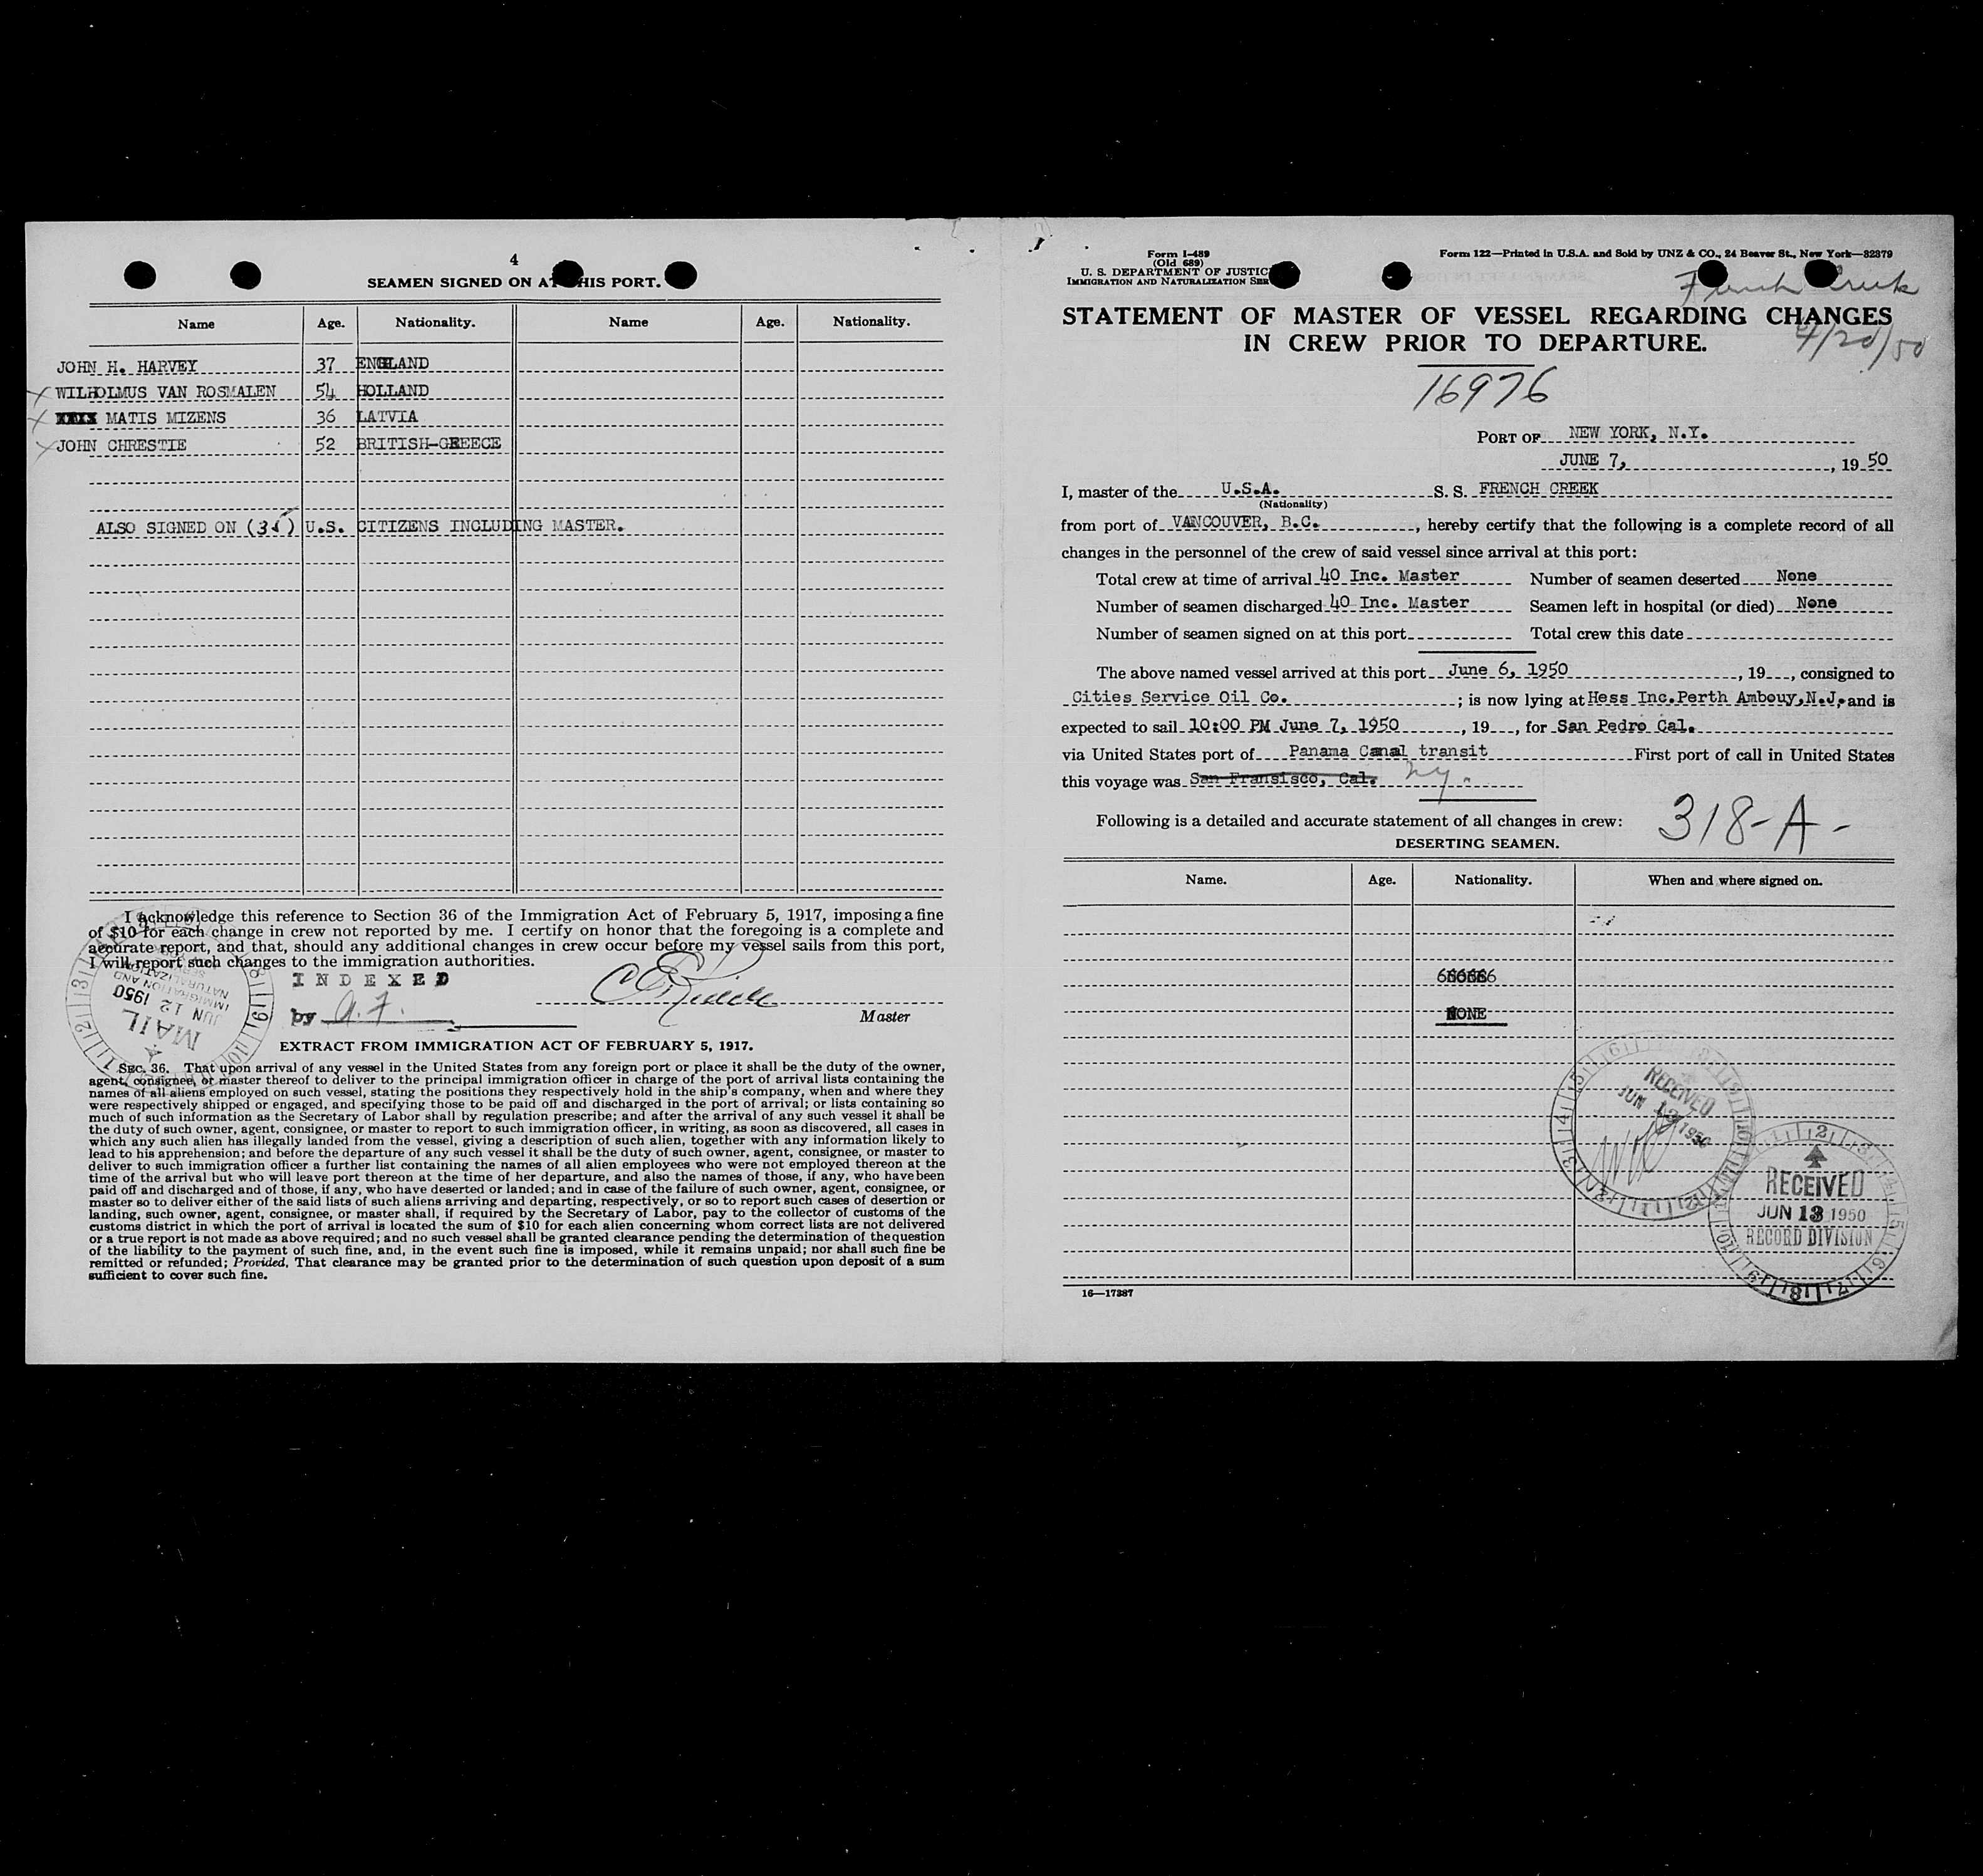 4
SEAMEN SIGNED ON AT THIS PORT.
Name Age. Nationality. Name Age. Nationality.
JOHN H. HARVEY 37 ENGLAND
WILHOLMUS VAN ROSMALEN 54 HOLLAND
XXXX MATIS MIZENS 36 LATVIA
JOHN CHRESTIE 52 BRITISH-GREECE
ALSO SIGNED ON (36) U.S. CITIZENS INCLUDING MASTER.
I acknowledge this reference to Section 36 of the Immigration Act of February 5, 1917, imposing a fine
of $10 for each change in crew not reported by me. I certify on honor that the foregoing is a complete and
accurate report, and that, should any additional changes in crew occur before my vessel sails from this port,
I will report such changes to the immigration authorities.
INDEXED
by A.F.
Master
MAIL
JUN 12 1950
IMMIGRATION AND
NATURALIZATION
EXTRACT FROM IMMIGRATION ACT OF FEBRUARY 5, 1917.
SEC. 36. That upon arrival of any vessel in the United States from any foreign port or place it shall be the duty of the owner,
agent, consignee, or master thereof to deliver to the principal immigration officer in charge of the port of arrival lists containing the
names of all aliens employed on such vessel, stating the positions they respectively hold in the ship's company, when and where they
were respectively shipped or engaged, and specifying those to be paid off and discharged in the port of arrival; or lists containing so
much of such information as the Secretary of Labor shall by regulation prescribe; and after the arrival of any such vessel it shall be
the duty of such owner, agent, consignee, or master to report to such immigration officer, in writing, as soon as discovered, all cases in
which any such alien has illegally landed from the vessel, giving a description of such alien, together with any information likely to
lead to his apprehension; and before the departure of any such vessel it shall be the duty of such owner, agent, consignee, or master to
deliver to such immigration officer a further list containing the names of all alien employees who were not employed thereon at the
time of the arrival but who will leave port thereon at the time of her departure, and also the names of those, if any, who have been
paid off and discharged and of those, if any, who have deserted or landed; and in case of the failure of such owner, agent, consignee, or
master so to deliver either of the said lists of such aliens arriving and departing, respectively, or so to report such cases of desertion or
landing, such owner, agent, consignee, or master shall, if required by the Secretary of Labor, pay to the collector of customs of the
customs district in which the port of arrival is located the sum of $10 for each alien concerning whom correct lists are not delivered
or a true report is not made as above required; and no such vessel shall be granted clearance pending the determination of the question
of the liability to the payment of such fine, and, in the event such fine is imposed, while it remains unpaid; nor shall such fine be
remitted or refunded; Provided, That clearance may be granted prior to the determination of such question upon deposit of a sum
sufficient to cover such fine.
Form I-489
(Old 689)
U. S. DEPARTMENT OF JUSTICE
IMMIGRATION AND NATURALIZATION SER
Form 122—Printed in U.S.A. and Sold by UNZ & CO., 24 Beaver St., New York—32379
French Creek
STATEMENT OF MASTER OF VESSEL REGARDING CHANGES
IN CREW PRIOR TO DEPARTURE.
4/20/50
16976
PORT OF NEW YORK, N.Y.
JUNE 7, , 19 50
I, master of the U.S.A. S. S. FRENCH CREEK
(Nationality)
from port of VANCOUVER, B.C. , hereby certify that the following is a complete record of all
changes in the personnel of the crew of said vessel since arrival at this port:
Total crew at time of arrival 40 Inc. Master Number of seamen deserted None
Number of seamen discharged 40 Inc. Master Seamen left in hospital (or died) None
Number of seamen signed on at this port Total crew this date
The above named vessel arrived at this port June 6, 1950 , 19 , consigned to
Cities Service Oil Co. ; is now lying at Hess Inc.Perth Ambouy,N.J. and is
expected to sail 10:00 PM June 7, 1950 , 19 , for San Pedro Cal.
via United States port of Panama Canal transit First port of call in United States
this voyage was San Fransisco, Cal. Ny.
Following is a detailed and accurate statement of all changes in crew: 318-A-
DESERTING SEAMEN.
Name. Age. Nationality. When and where signed on.
NONE
RECEIVED
JUN 1950
RECEIVED
JUN 13 1950
RECORD DIVISION
16—17387